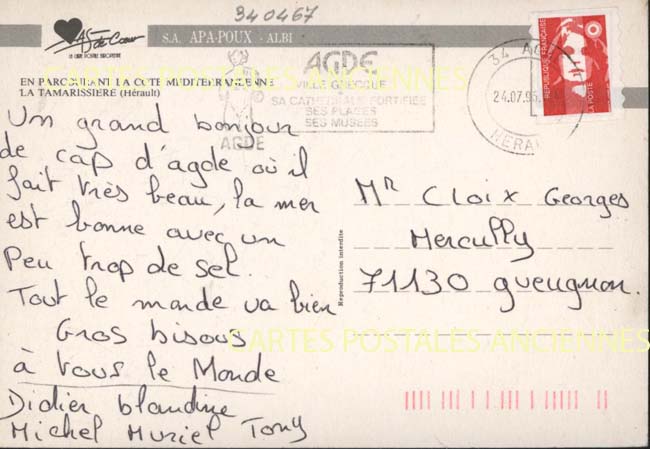 340467
As de Cœur
LE CHIC POSTAL EUROPEEN
S.A. APA-POUX - ALBI
EN PARCOURANT LA COTE MEDITERRANEENNE
LA TAMARISSIERE (Hérault)
AGDE
AGDE
VILLE GRECQUE
SA CATHEDRALE FORTIFIEE
SES PLAGES
SES MUSEES
34 AGDE
24.07.95
HERAULT
REPUBLIQUE FRANÇAISE
LA POSTE
Un grand bonjour
de cap d'agde où il
fait très beau, la mer
est bonne avec un
Peu trop de sel.
Tout le monde va bien
Gros bisous
à Tous le Monde
Didier blandine
Michel Muriel Tony
Reproduction interdite
Mr Cloix Georges
Mercully
71130 gueugnon.
CARTES POSTALES ANCIENNES
CARTES POSTALES ANCIENNES